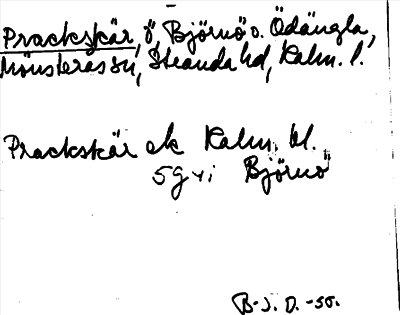 Prackskär, ö, Björnö o. Ödängla,
Mönsterås sn, Stranda hd, Kalm. l.
Prackskär ek Kalm. bl.
5g vi Björnö
B-J. D. -55.